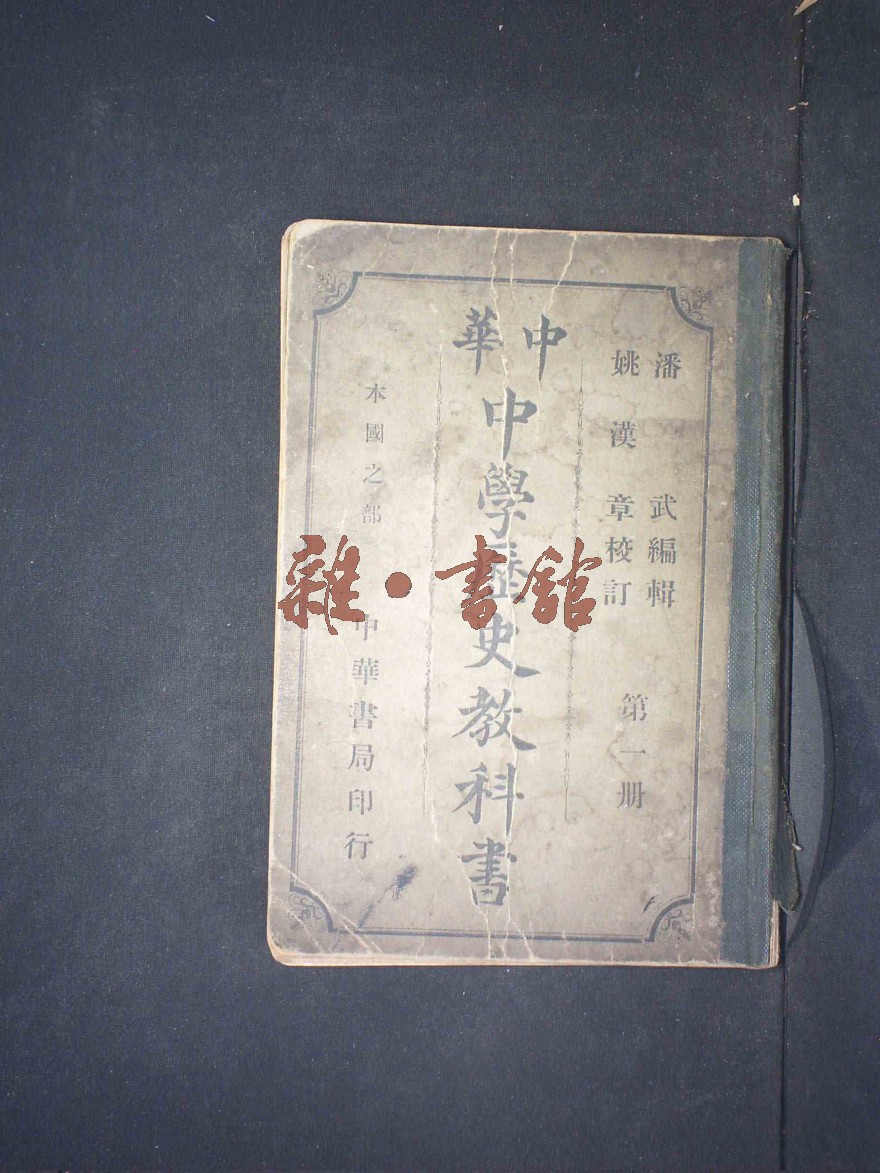 潘武編輯
姚漢章校訂
第一册
中華
中學歷史教科書
本國之部
中華書局印行
雜·書館